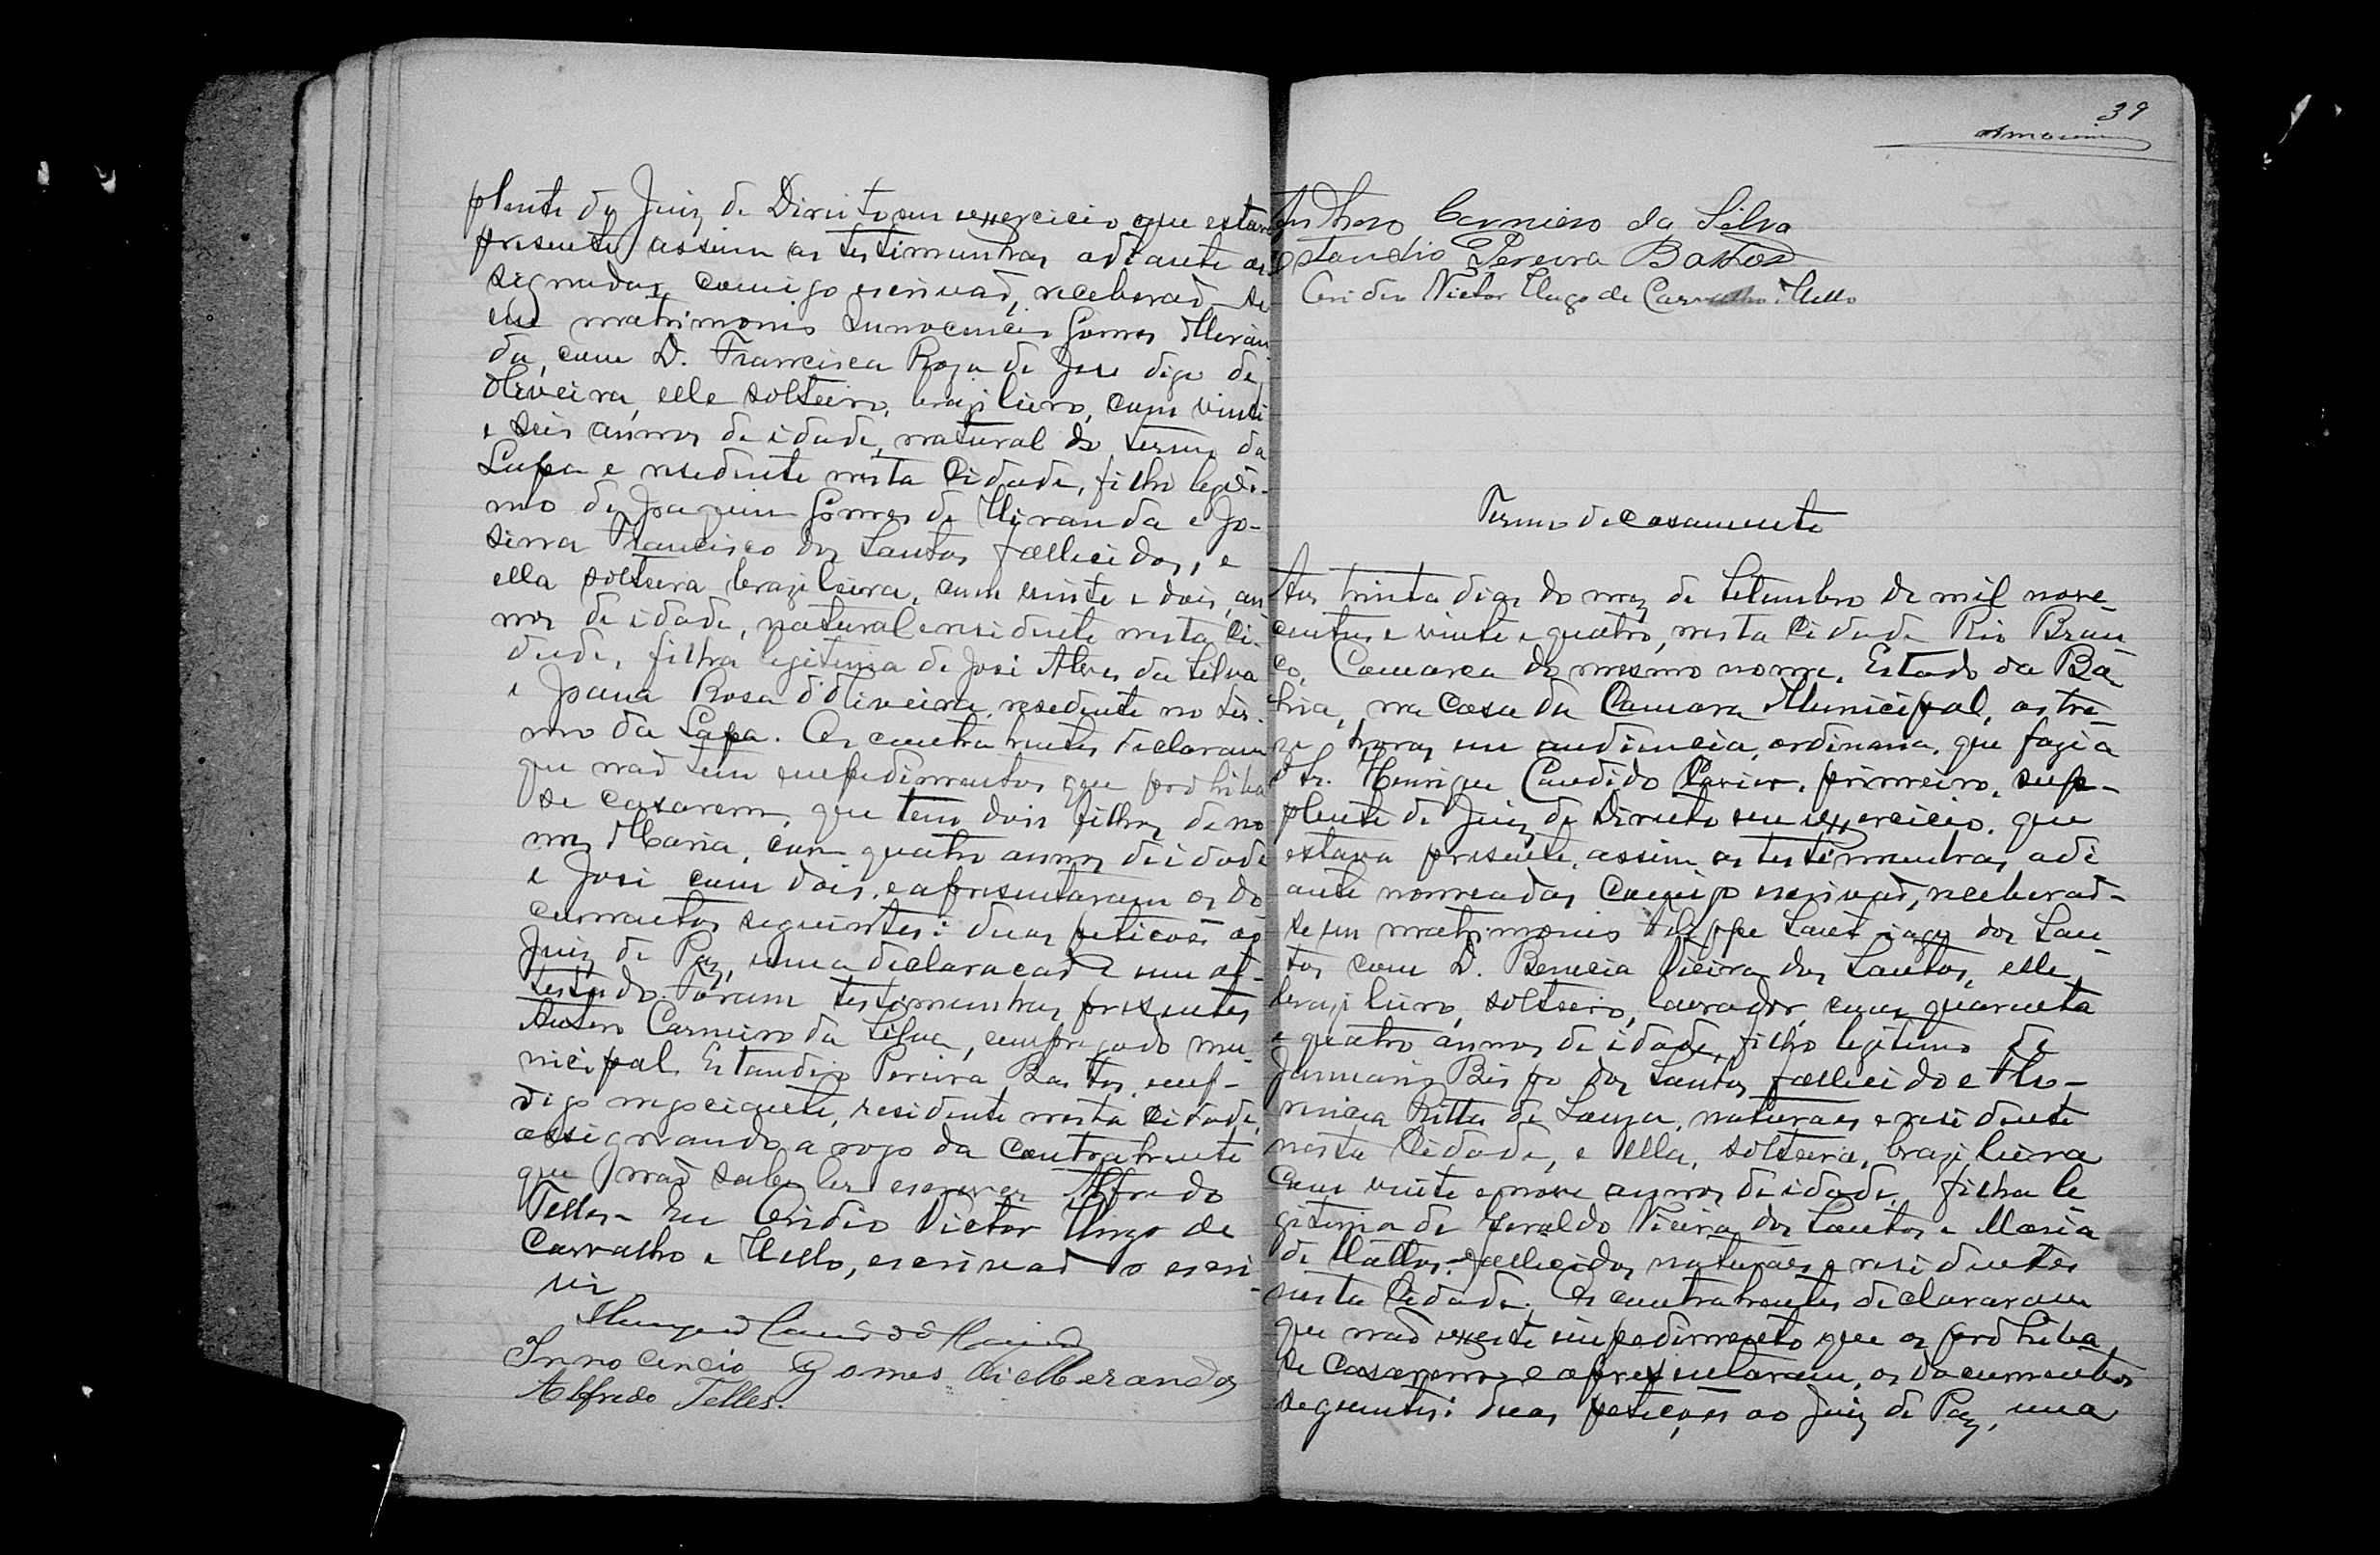 plente do Juiz de Direito em exxercicio que estava
presente, assim as testimunhas adiante as-
signadas comigo escrivaõ, receberaõ-se
em matrimonio Innocencio Gomes Miran-
da, com D. Francisca Roza de Jese digo de
Oliveira, elle solteiro, brazileiro, com vinte
e seis annos de idade, natural do termo da
Lapa e residente nesta Cidade, filho legiti-
mo de Joaquim Gomes de Miranda e Jo-
Francisco dos Santos fallecidos, e
ella solteira brazileira, com vinte e dois an
nos de idade, natural e residente nesta Ci-
dade, filha legitima de José Alves da Silva
e Joana Rosa d'Oliveira, residente no ter-
mo da Lapa. Os contrahentes declararam
que naõ tem empedimentos que prohiba
se casarem, que tem dois filhos de no
mes Maria, com quatro annos de idade
e José com dois, e apresentaram os do
cumentos seguintes: duas peticoẽs ao
Juiz de Paz, uma declaracaõ e um at-
testado. Foram testimunhas presentes
Antero Carneiro da Silva, empregado mu-
nicipal Estandio Pereira Bastos, emp-
digo negociante, residente nesta Cidade,
assignando a rogo da Contrahente
que naõ sabe ler escrever Alfredo
Telles. Eu Ceridio Victor Hugo de
Carvalho e Mello, escrivaõ o escri-
vi
Henrique Candido
Innocencio Gomes di Meranda
Alfredo Telles.
39
Amorim
Anthero Carneiro da Silva
Estandio Pereira Bastos
Ceridio Victor Hugo de Carvalho Mello
Termo de casamento
Aos trinta dias do mez de Setembro de mil nove-
centos e vinte e quatro, nesta Cidade Rio Bran-
co, Comarca do mesmo nome, Estado da Ba-
hia, na Casa da Camara Municipal, as tre-
ze horas em audiencia ordinaria, que fazia
o Sr. Henrique Candido primeiro sup-
plente de Juiz de Direito em exxercicio, que
estava presente, assim as testimunhas adi
ante nomeadas comigo escrivaõ, receberaõ-
se em matrimonio Santiago dos San-
tos com D. Vieira dos Santos, elle,
brazileiro, solteiro, lavrador, com quarenta
e quatro annos de idade, filho legitimo de
Januario Bispo dos Santos fallecido e
Ritta de Souza, naturaes e residente
nesta Cidade, e ella, solteira, brazileira
com vinte e nove annos de idade, filha le
gitima de Geraldo Vieira dos Santos e Maria
de Mattos, fallecidos, naturaes e residentes
nesta Cidade. Os contrahentes declararam
que naõ exxeste empedimento que os prohiba
se casarem e apresentaram, os documentos
seguintes: duas petiçoes ao Juiz de Paz, uma